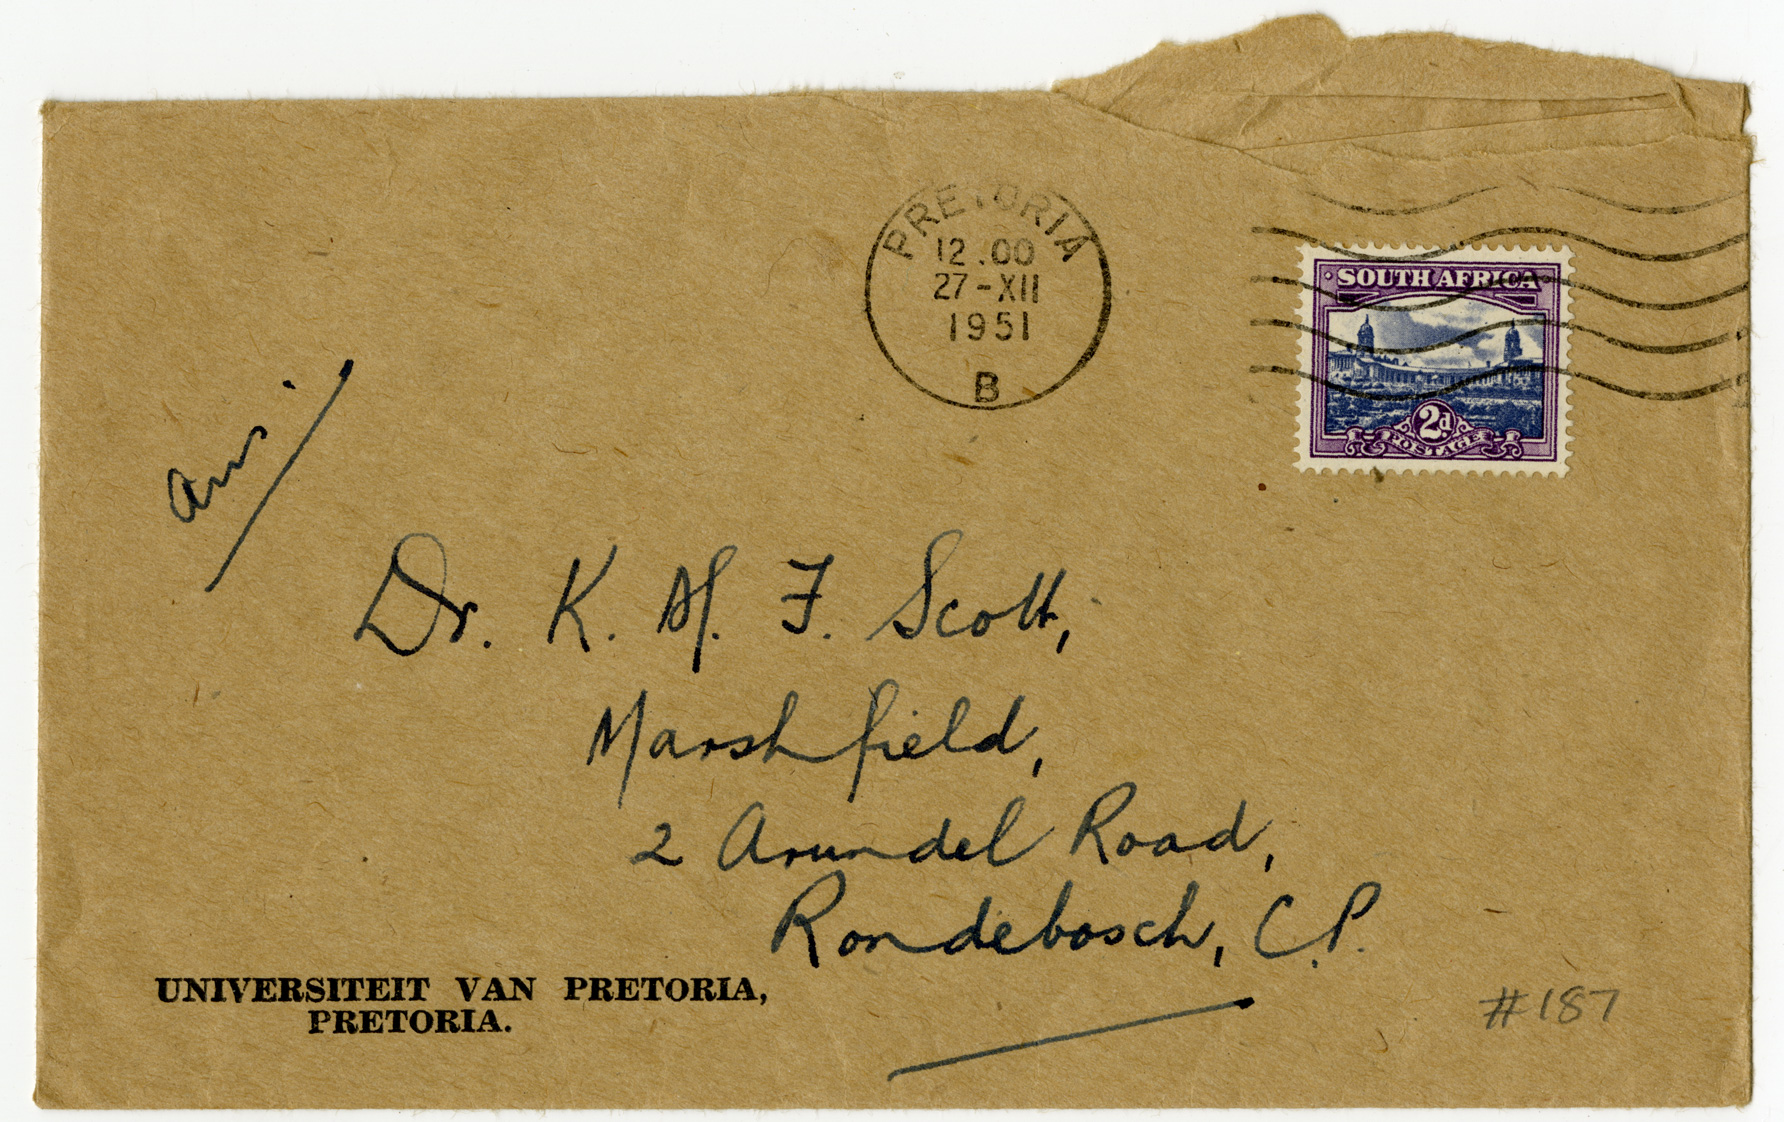 PRETORIA
12.00
27-XII
1951
B
SOUTH AFRICA
2d
POSTAGE
ans/
Dr. K. M. F. Scott,
Marshfield,
2 Arundel Road,
Rondebosch, C.P.
UNIVERSITEIT VAN PRETORIA,
PRETORIA.
#187